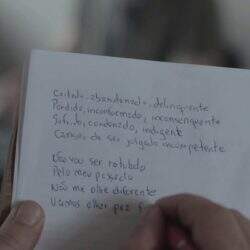 Coitado, abandonado, delinquente
Perdido, inconformado, inconsequente
Sofrido, condenado, indigente
Cansou de ser julgado incompetente
Não vou ser rotulado
Pelo meu passado
Não me olhe diferente
Vamos olhar pra f